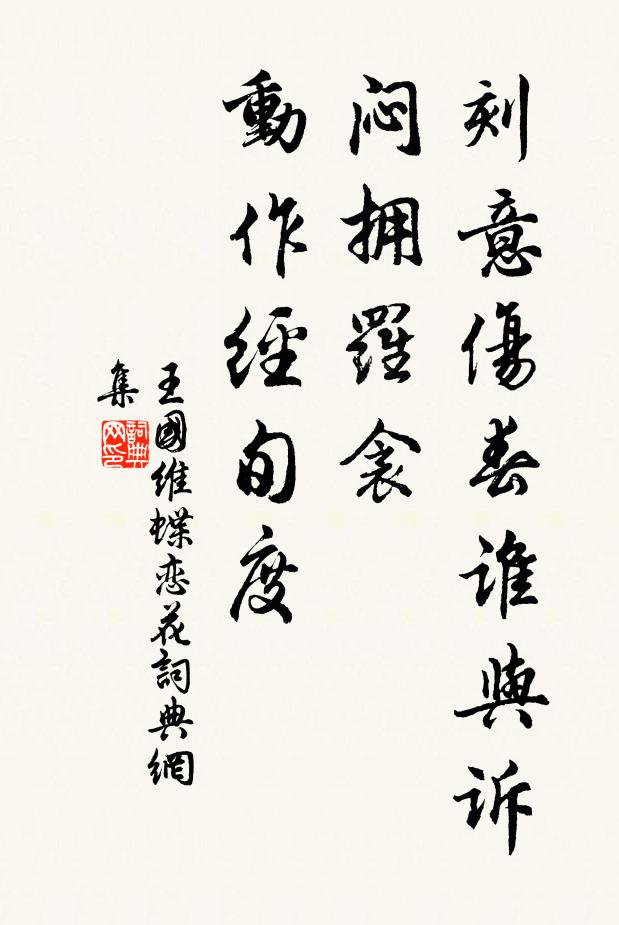 刻意傷春誰與訴
闷拥羅衾
動作經旬度
王國維蝶恋花詞典網
集
詞典
网印